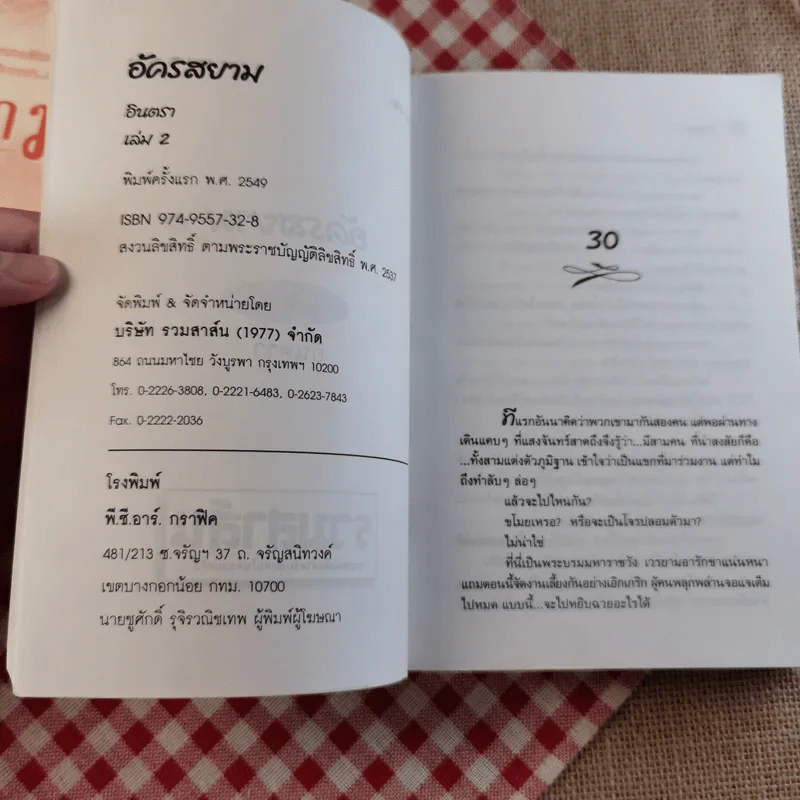 อัครสยาม
อินตรา
เล่ม 2
พิมพ์ครั้งแรก พ.ศ. 2549
ISBN 974-9557-32-8
สงวนลิขสิทธิ์ ตามพระราชบัญญัติลิขสิทธิ์ พ.ศ. 2537
จัดพิมพ์ & จัดจำหน่ายโดย
บริษัท รวมสาส์น (1977) จำกัด
864 ถนนมหาไชย วังบูรพา กรุงเทพฯ 10200
โทร. 0-2226-3808, 0-2221-6483, 0-2623-7843
Fax. 0-2222-2036
โรงพิมพ์
พี.ซี.อาร์. กราฟิค
481/213 ซ.จรัญฯ 37 ถ. จรัญสนิทวงศ์
เขตบางกอกน้อย กทม. 10700
นายชูศักดิ์ รุจิรวณิชเทพ ผู้พิมพ์ผู้โฆษณา
30
ทีแรกอันนาคิดว่าพวกเขามากันสองคน แต่พอผ่านทาง
เดินแคบๆ ที่แสงจันทร์สาดถึงจึงรู้ว่า...มีสามคน ที่น่าสงสัยก็คือ
...ทั้งสามแต่งตัวภูมิฐาน เข้าใจว่าเป็นแขกที่มาร่วมงาน แต่ทำไม
ถึงทำลับๆ ล่อๆ
แล้วจะไปไหนกัน?
ขโมยเหรอ? หรือจะเป็นโจรปลอมตัวมา?
ไม่น่าใช่
ที่นี่เป็นพระบรมมหาราชวัง เวรยามอารักขาแน่นหนา
แถมตอนนี้จัดงานเลี้ยงกันอย่างเอิกเกริก ผู้คนพลุกพล่านจอแจเต็ม
ไปหมด แบบนี้...จะไปหยิบฉวยอะไรได้